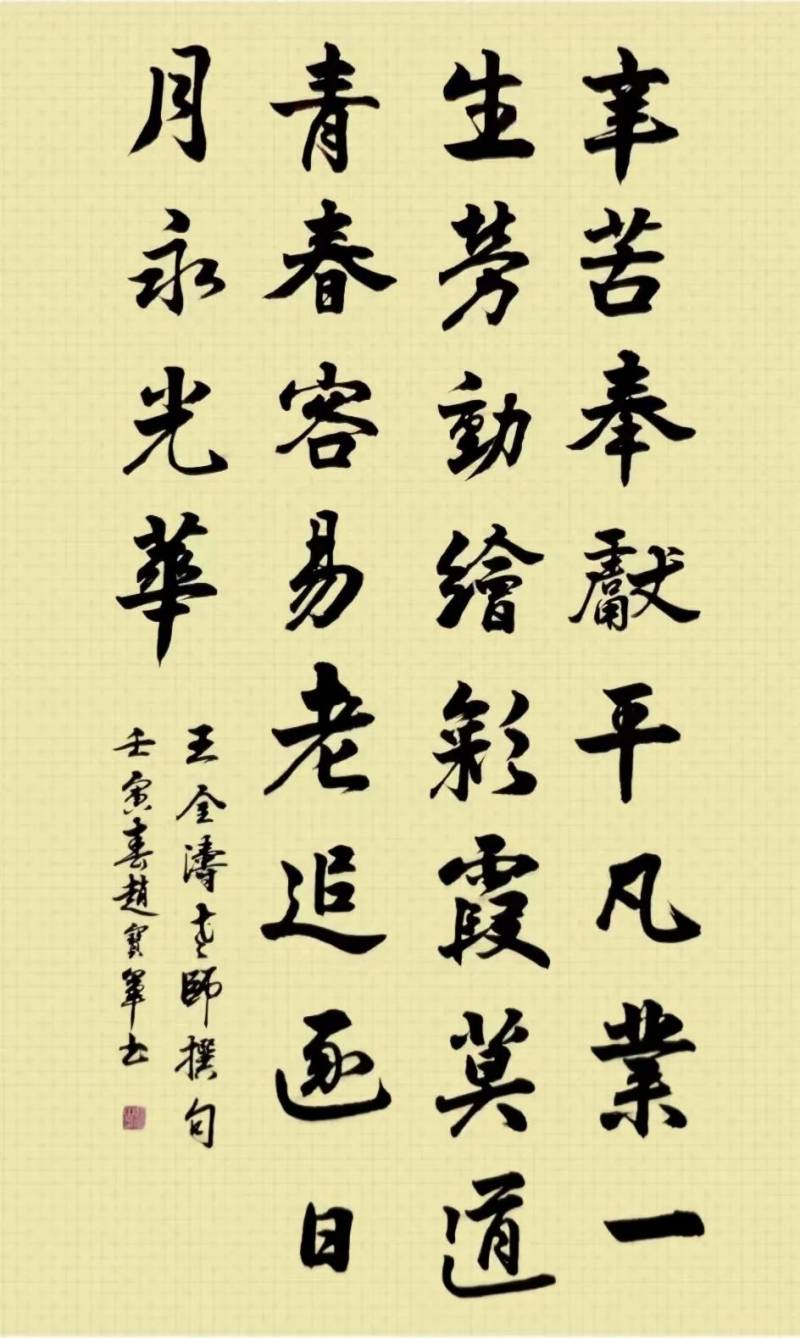 辛苦奉獻平凡業一
生勞動繪彩霞莫道
青春容易老追逐日
月永光華
王全濤老師撰句
壬寅春趙寶军书